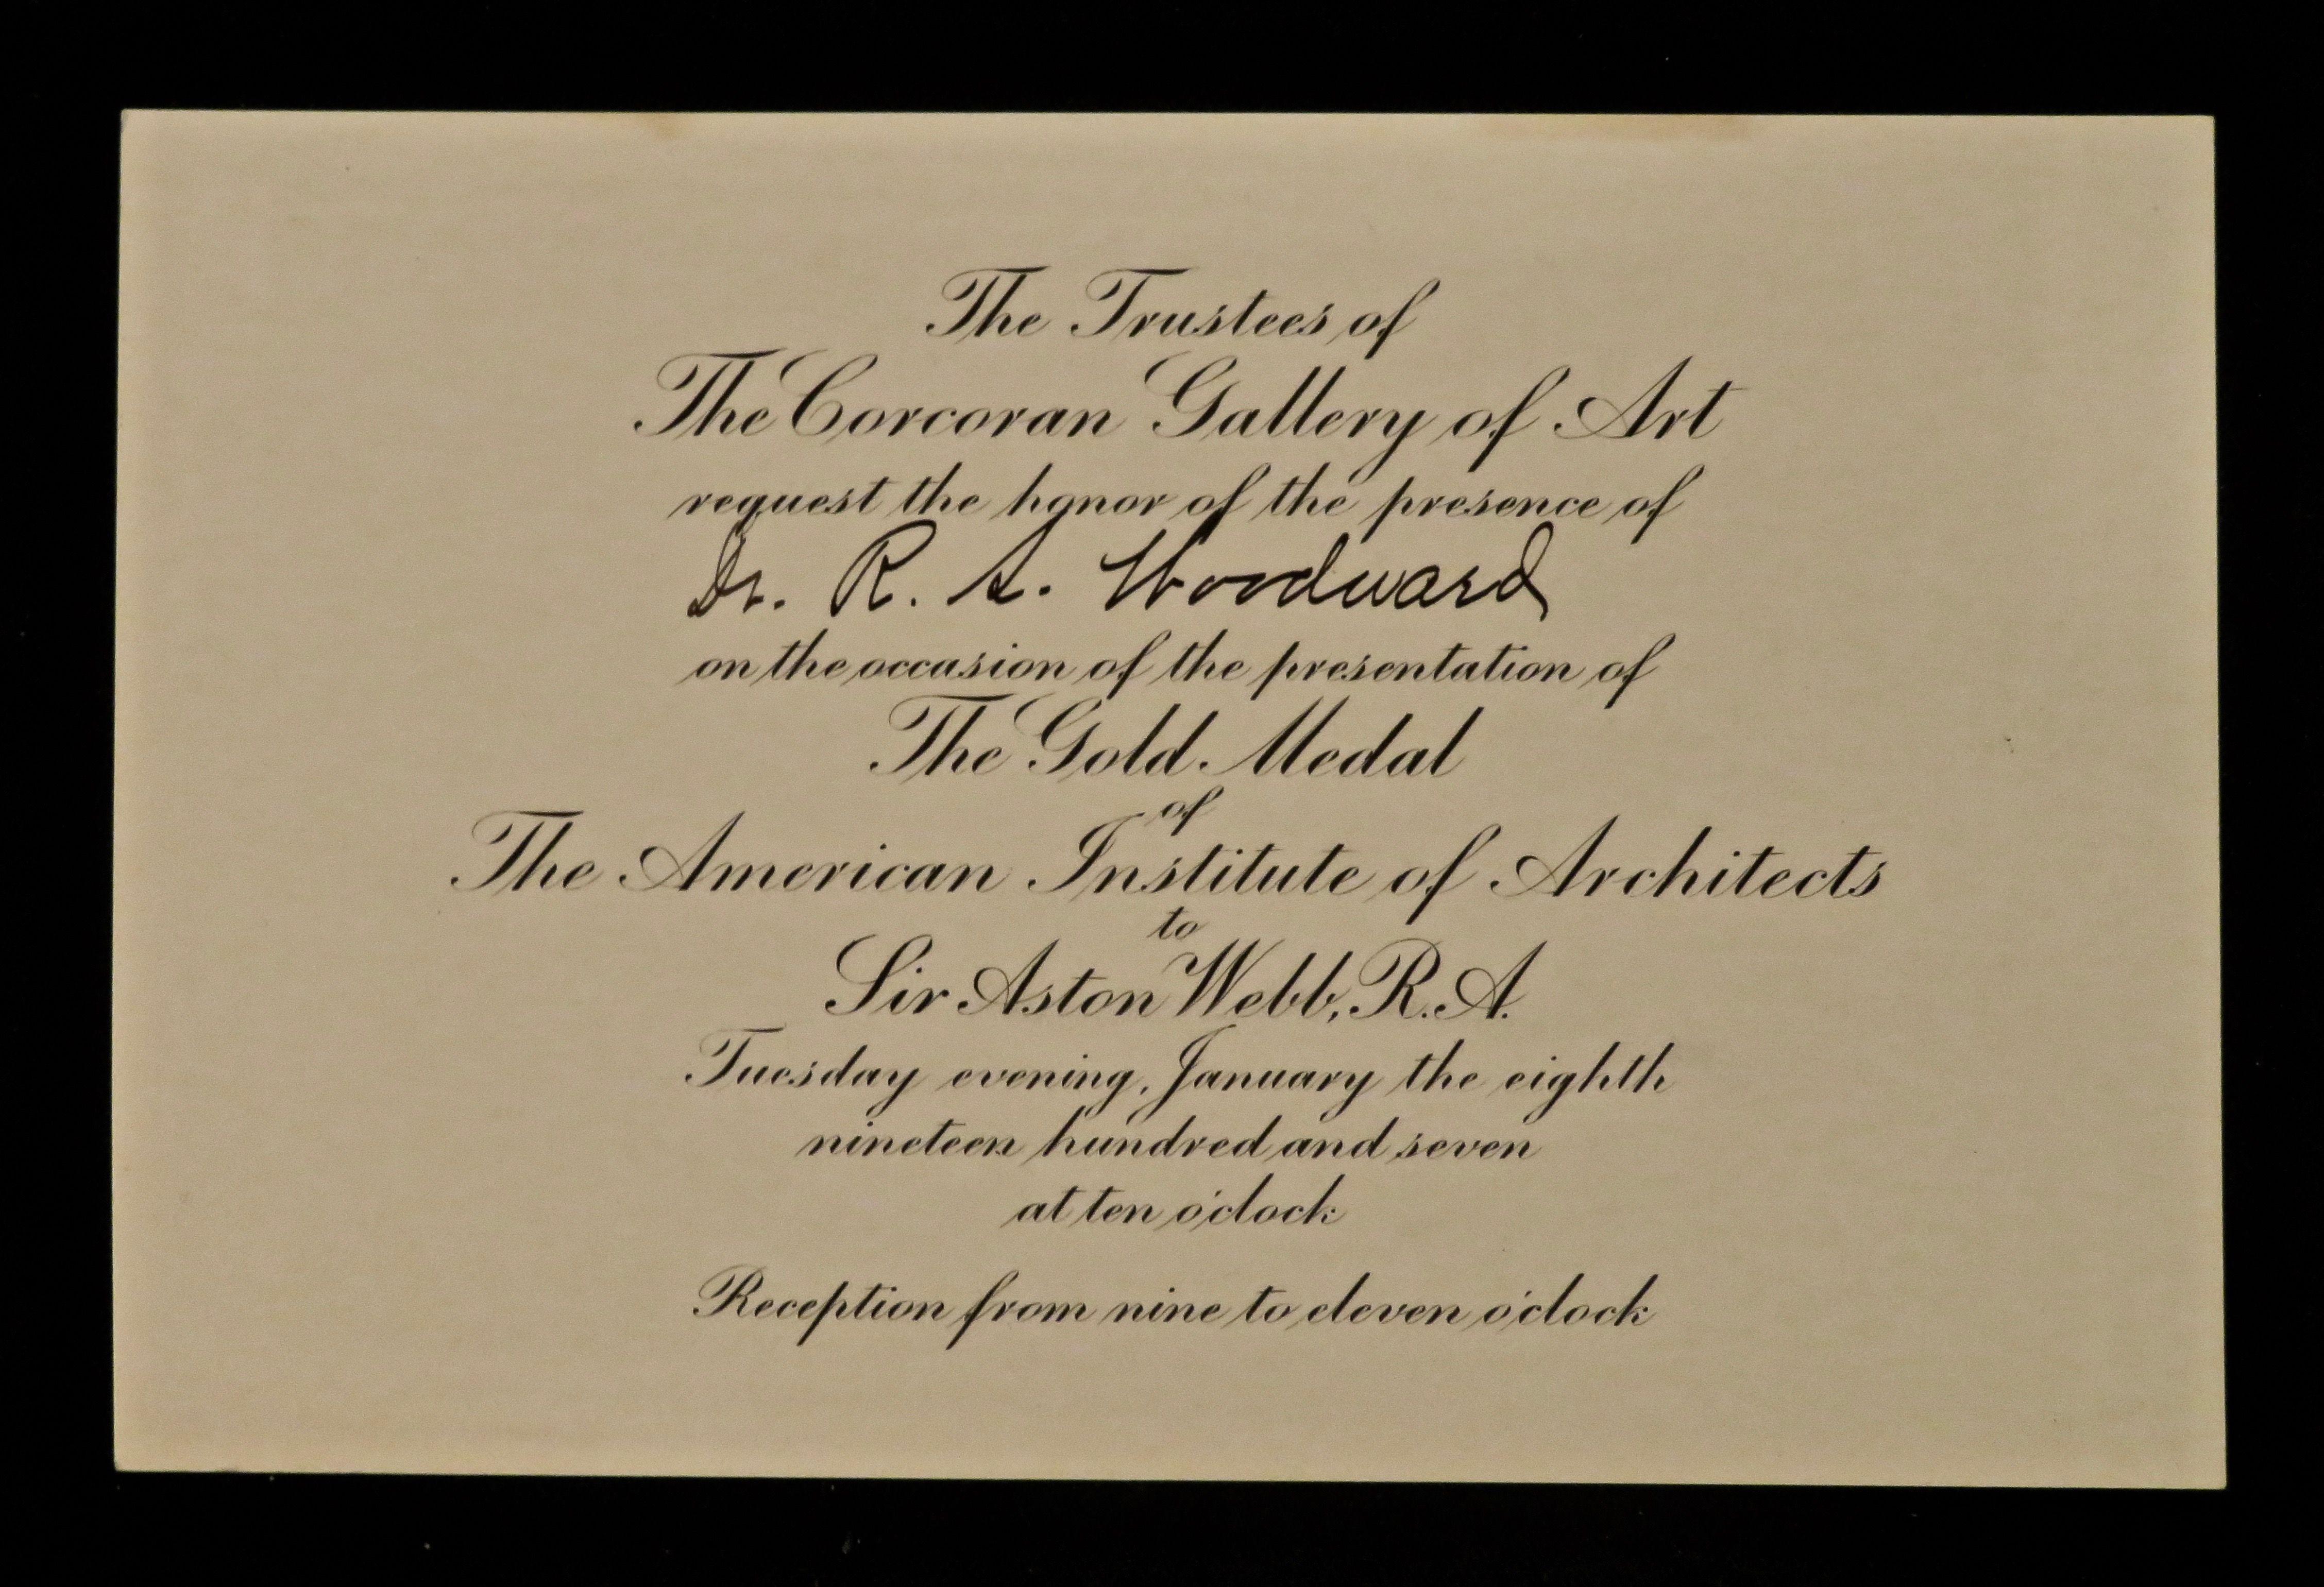 The Trustees of
The Corcoran Gallery of Art
request the honor of the presence of
Dr. R. S. Woodward
on the occasion of the presentation of
The Gold Medal
of
The American Institute of Architects
to
Sir Aston Webb, R.A.
Tuesday evening, January the eighth
nineteen hundred and seven
at ten o'clock
Reception from nine to eleven o'clock